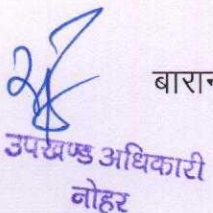 बारान
उपखण्ड अधिकारी
नोहर